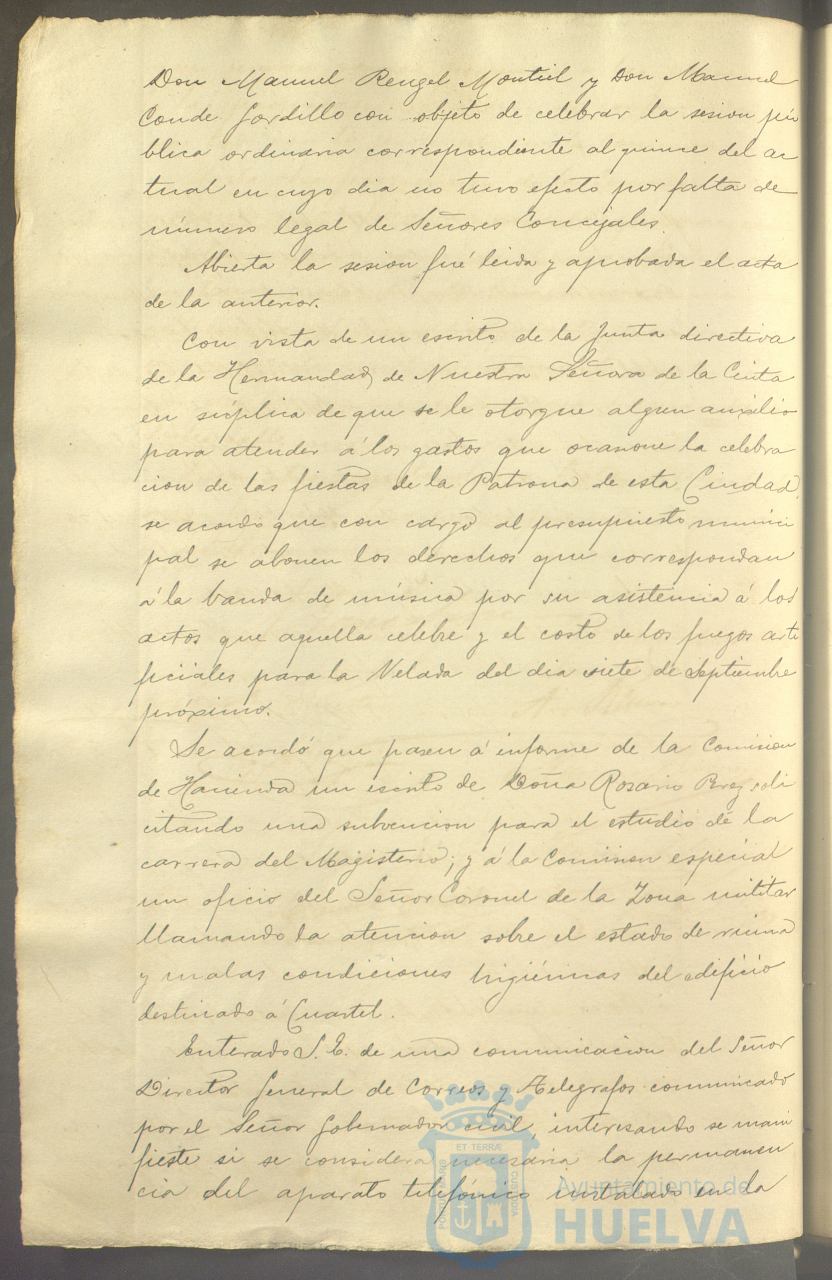 Don Manuel Rengel Montiel y Don Manuel
Conde Gordillo con objeto de celebrar la sesion pú
blica ordinaria correspondiente al quince del ac
tual en cuyo dia no tuvo efecto por falta de
número legal de Señores Concejales.
Abierta la sesion fué leida y aprobada el acta
de la anterior.
Con vista de un escrito de la Junta directiva
de la Hermandad de Nuestra Señora de la Cinta
en súplica de que se le otorgue algun auxilio
para atender á los gastos que ocasione la celebra
cion de las fiestas de la Patrona de esta Ciudad,
se acordo que con cargo al presupuesto munici
pal se abonen los derechos que correspondan
á la banda de música por su asistencia á los
actos que aquella celebre y el costo de los fuegos arti
ficiales para la Velada del dia siete de Septiembre
próximo.
Se acordó que pasen á informe de la Comision
de Hacienda un escrito de Doña Rosario Perez soli
citando una subvencion para el estudio de la
carrera del Magisterio; y á la Comision especial
un oficio del Señor Coronel de la Zona militar
llamando la atencion sobre el estado de ruina
y malas condiciones higiénicas del edificio
destinado á Cuartel.
Enterado S. E. de una comunicacion del Señor
Director General de Correos y Telegrafos comunicado
por el Señor Gobernador civil, interesando se mani
fieste si se considera necesaria la permanen
cia del aparato telefónico instalado en la
ET TERRÆ
PORTUS MARIS
CUSTODIA
Ayuntamiento de
HUELVA